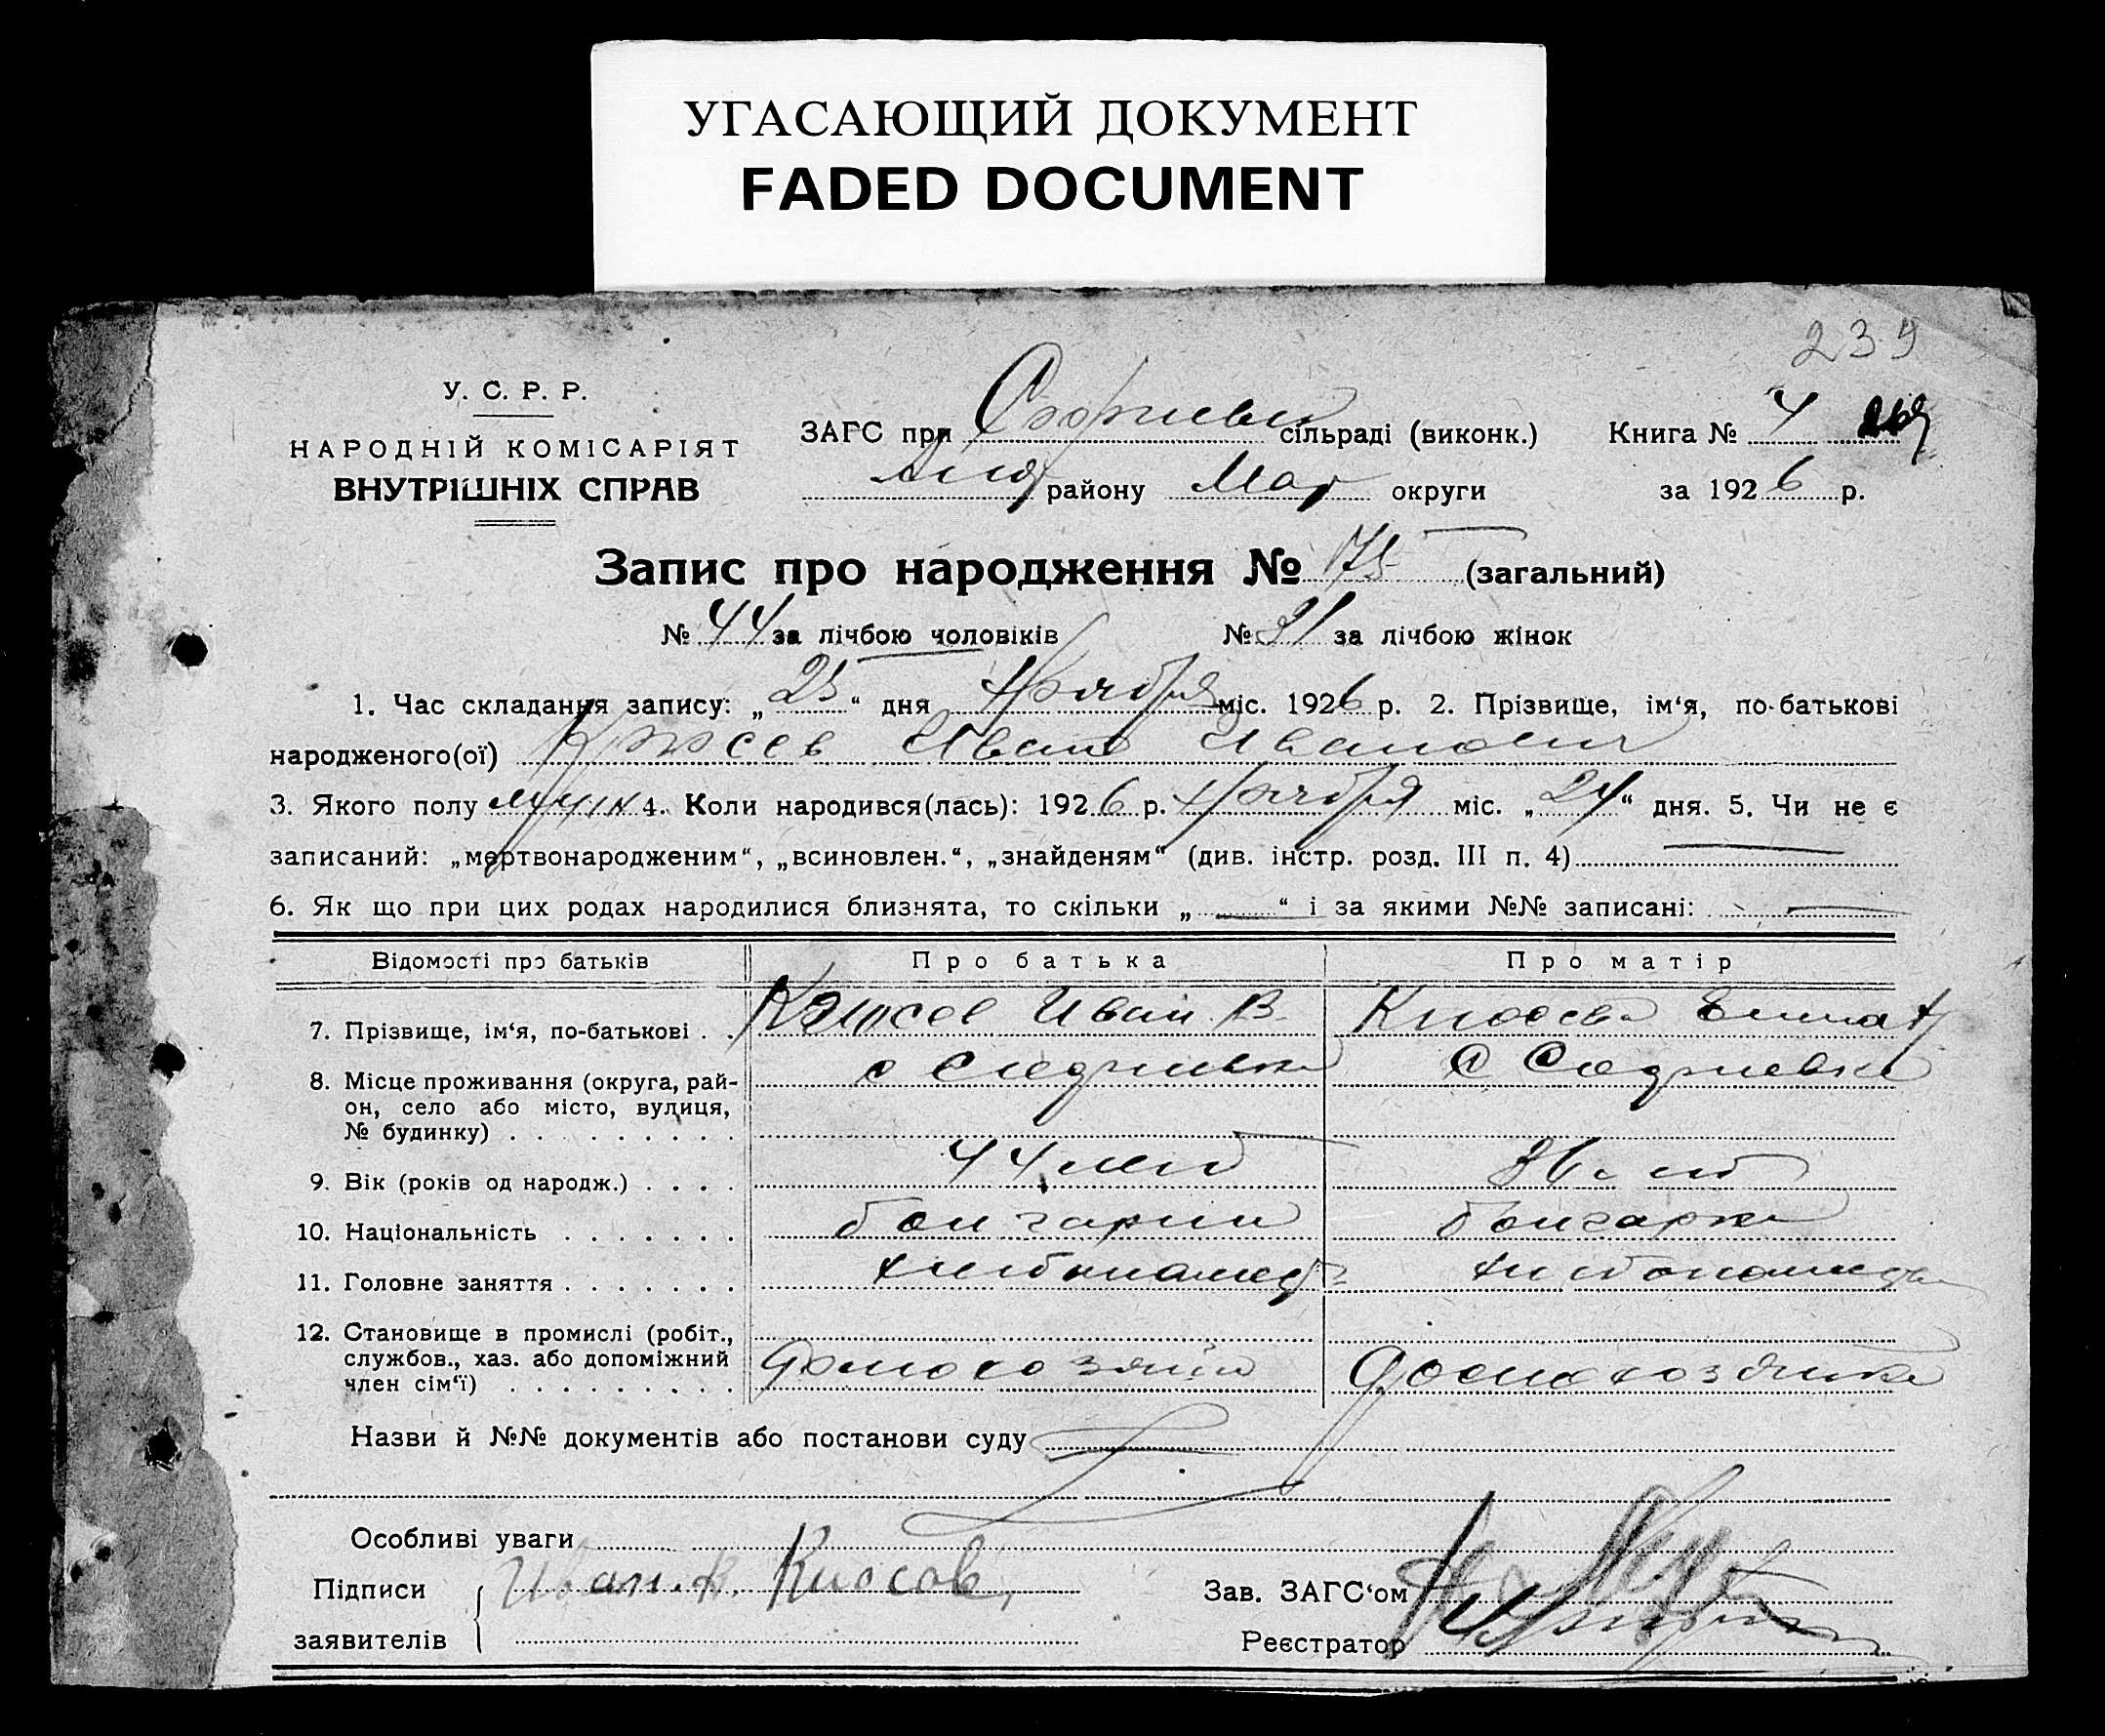 УГАСАЮЩИЙ ДОКУМЕНТ
FADED DOCUMENT
239
У. С. Р. Р.
НАРОДНІЙ КОМІСАРІЯТ
ВНУТРІШНІХ СПРАВ
ЗАГС при сільраді (виконк.) Книга № 4
району Мар округи за 1926 р.
Запис про народження № 175 (загальний)
№ 44 за лічбою чоловіків № 31 за лічбою жінок
1. Час складання запису: „25“ дня Ноября міс. 1926 р. 2. Прізвище, ім‘я, по-батькові
народженого(ої) Кюсев Иван Иванович
3. Якого полу 4. Коли народився(лась): 1926 р. Ноября міс. „24“ дня. 5. Чи не є
записаний: „мертвонародженим“, „всиновлен.“, „знайденям“ (див. інстр. розд. III п. 4)
6. Як що при цих родах народилися близнята, то скільки „ “ і за якими №№ записані:
Відомості про батьків Про батька Про матір
7. Прізвище, ім‘я, по-батькові . . Кюсев Иван В. Кюсева
8. Місце проживання (округа, рай-
он, село або місто, вулиця,
№ будинку) . . . . . . . . .
9. Вік (років од народж.) . . . . 44 лет 36 лет
10. Національність . . . . . . . болгарин болгарка
11. Головне заняття . . . . . . . хлебопашец
12. Становище в промислі (робіт.,
службов., хаз. або допоміжний
член сім‘ї) . . . . . . . . . домохозяин домохозяйка
Назви й №№ документів або постанови суду
Особливі уваги
Підписи Иван. В. Кюсов Зав. ЗАГС‘ом
заявителів Реєстратор